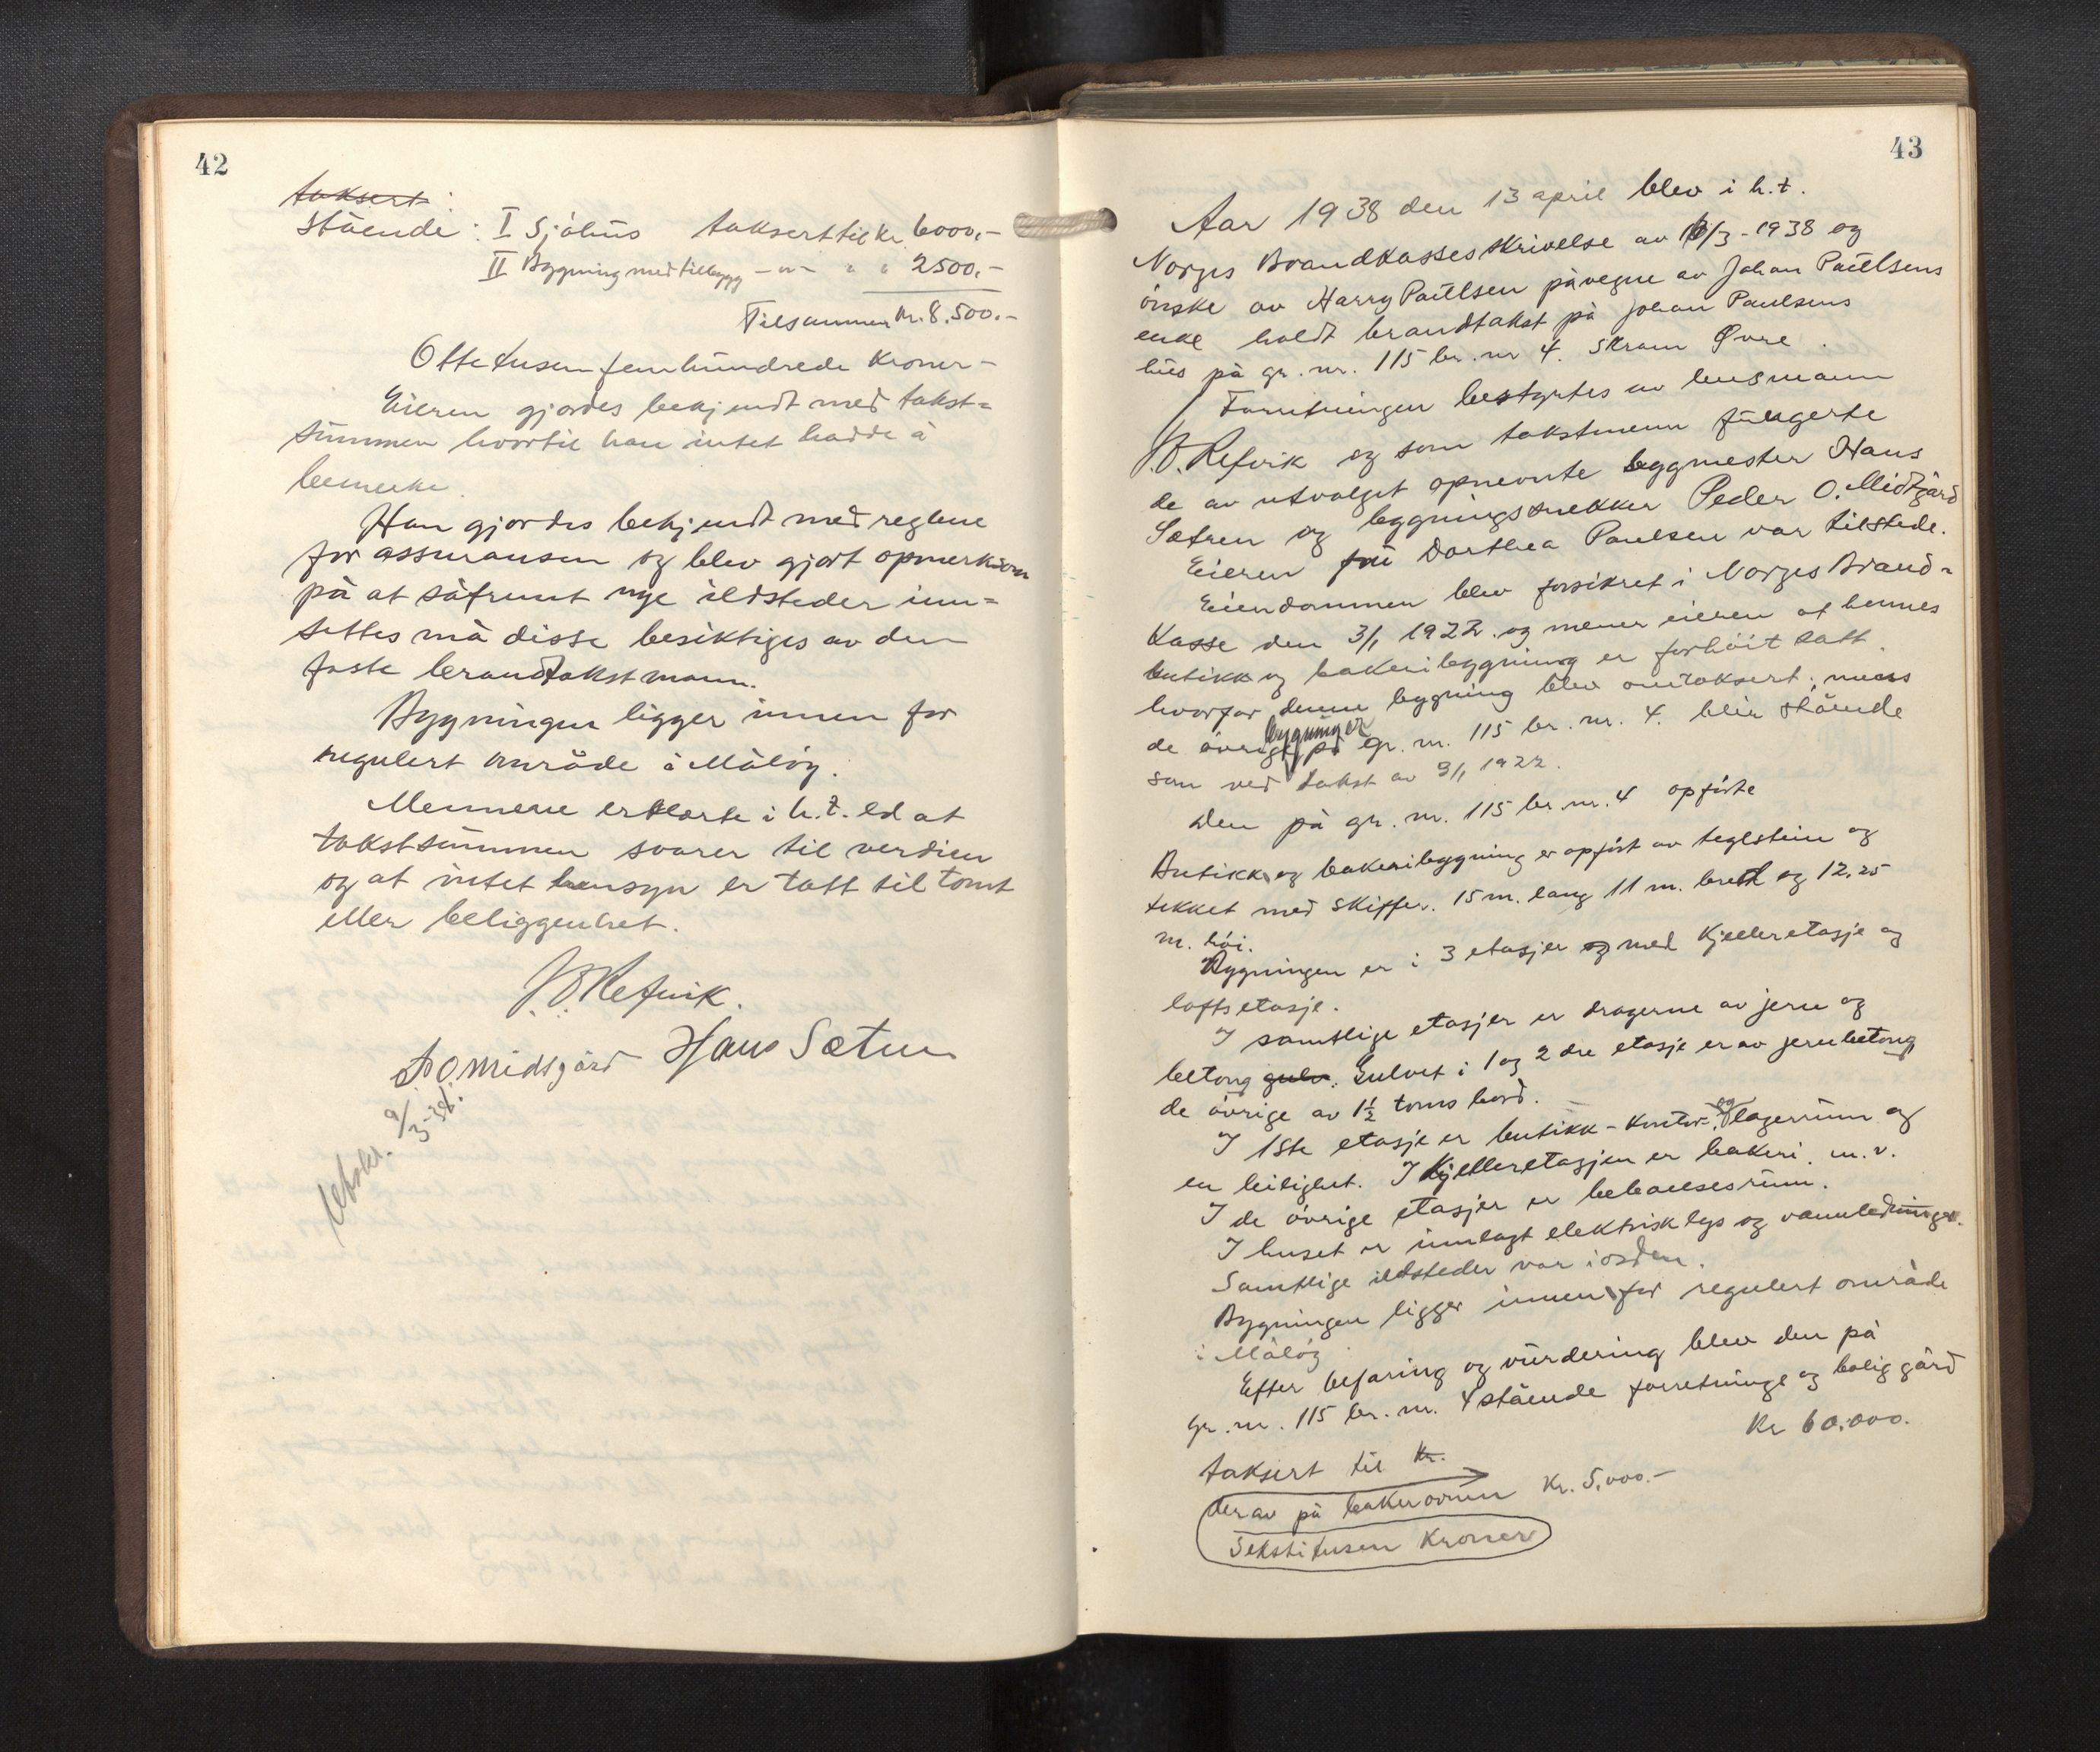 42
taksert
stående: I Sjøhus taksert til kr. 6000,-
II Bygning med tilbygg -"- " " 2500,-
Tilsammen kr. 8.500.-
Ottetusen femhundrede kroner-
Eieren gjordes bekjendt med takst=
summen hvortil han intet hadde å
bemerke.
Han gjordes bekjendt med reglene
for assuransen og blev gjort opmerksom
på at såfremt nye ildsteder inn=
settes må disse besiktiges av den
faste brandtakstmann.
Bygningen ligger innen for
regulert område i Måløy.
Mennene erklærte i h.t. ed at
takstsummen svarer til verdien
og at intet hensyn er tatt til tomt
eller beliggenhet.
Refvik.
P O Midtgård Hans Sætren
Utskr. 9/3-38.
43
Aar 1938 den 13 april blev i h.t.
Norges Brandkasses skrivelse av 16/3-1938 og
ønske av Harry Paulsen på vegne av Johan Paulsens
enke holdt brandtakst på Johan Paulsens
hus på gr. nr. 115 br. nr 4. Skram Øvre.
Forretningen bestyrtes av lensmann
Refvik og som takstmenn fungerte
de av utvalget opnevnte byggmester Hans
Sætren og bygningssnekker Peder O. Midtgård
Eieren fru Dorthea Paulsen var tilstede.
Eiendommen blev forsikret i Norges Brand=
kasse den 3/1 1922. og mener eieren at hennes
butikk og bakeribygning er forhøit satt.
hvorfor denne bygning blev omtaksert, mens
de øvrige bygninger på gr. nr. 115 br. nr. 4. blir stående
som ved takst av 3/1 1922.
Den på gr. nr. 115 br. nr. 4 opførte
Butikk og bakeribygning er opført av teglstein og
tekket med skiffer. 15 m. lang 11 m. bred og 12,25
m. høi.
Bygningen er i 3 etasjer og med kjelleretasje og
loftsetasje.
I samtlige etasjer er dragerne av jern og
betong gulv. Gulvet i 1 og 2 dre etasje er av jernbetong
de øvrige av 1½ toms bord.
I 1ste etasje er butikk - kontor- og lagerrum og
en leilighet. I kjelleretasjen er bakeri. m. v.
I de øvrige etasjer er beboelsesrum.
I huset er innlagt elektrisk lys og vannledninger.
Samtlige ildsteder var i orden.
Bygningen ligger innen for regulert område
i Måløy
Efter befaring og vurdering blev den på
gr. nr. 115 br. nr. 4 stående forretnings og boliggård
taksert til kr. Kr 60.000.
derav på bakerovnen Kr. 5.000.-
Sekstitusen Kroner